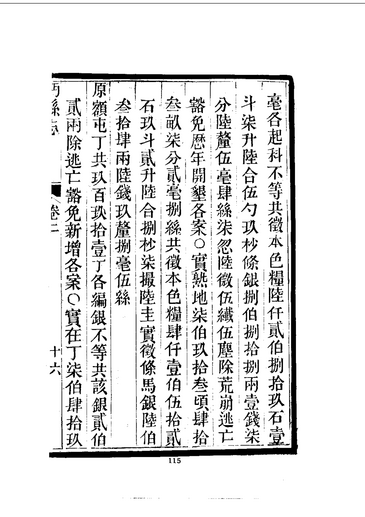 毫各起科不等共徵本色糧陸仟貳伯捌拾玖石壹
斗柒升陸合伍勺玖杪條銀捌伯捌拾捌兩壹錢柒
分陸釐伍毫肆絲柒忽陸微伍纖伍塵除荒崩逃亡
豁免歷年開墾各案○實熟地柒伯玖拾叁頃肆拾
叁畝柒分貳毫捌絲共徵本色糧肆仟壹伯伍拾貳
石玖斗貳升陸合捌杪柒撮陸圭實徵條馬銀陸伯
叁拾肆兩陸錢玖釐捌毫伍絲
原額屯丁共玖百玖拾壹丁各編銀不等共該銀貳伯
貳兩除逃亡豁免新增各案○實在丁柒伯肆拾玖
縣志 卷二 十六
115